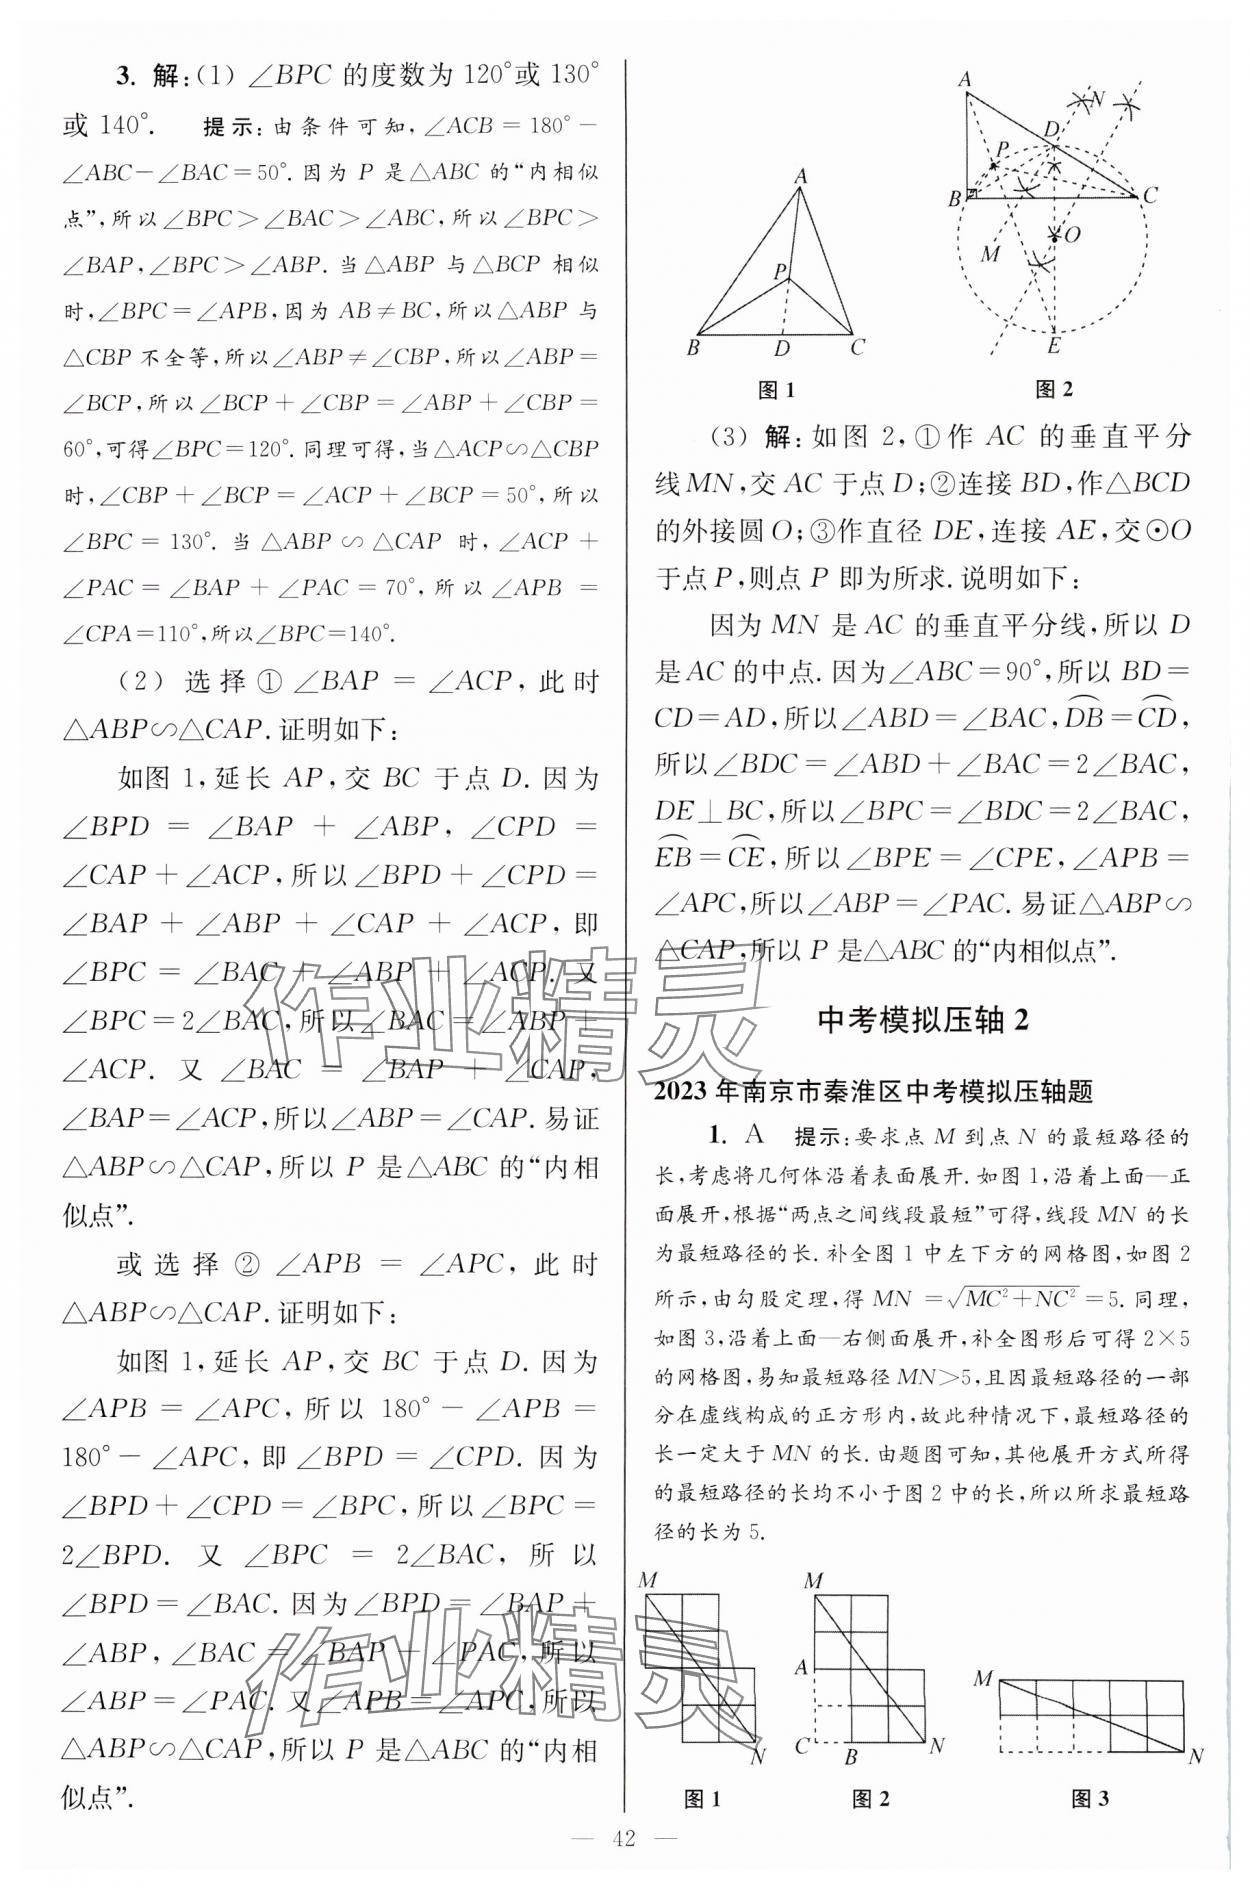 3. 解:(1) ∠BPC 的度数为 120°或 130°
或 140°. 提示:由条件可知,∠ACB=180°-
∠ABC-∠BAC=50°.因为 P 是△ABC 的“内相似
点”,所以∠BPC>∠BAC>∠ABC,所以∠BPC>
∠BAP,∠BPC>∠ABP.当△ABP 与△BCP 相似
时,∠BPC=∠APB,因为 AB≠BC,所以△ABP 与
△CBP 不全等,所以∠ABP≠∠CBP,所以∠ABP=
∠BCP,所以∠BCP+∠CBP=∠ABP+∠CBP=
60°,可得∠BPC=120°.同理可得,当△ACP∽△CBP
时,∠CBP+∠BCP=∠ACP+∠BCP=50°,所以
∠BPC=130°.当△ABP∽△CAP 时,∠ACP+
∠PAC=∠BAP+∠PAC=70°,所以∠APB=
∠CPA=110°,所以∠BPC=140°.
(2) 选择①∠BAP=∠ACP,此时
△ABP∽△CAP.证明如下:
如图 1,延长 AP,交 BC 于点 D.因为
∠BPD=∠BAP+∠ABP,∠CPD=
∠CAP+∠ACP,所以∠BPD+∠CPD=
∠BAP+∠ABP+∠CAP+∠ACP,即
∠BPC=∠BAC+∠ABP+∠ACP.又
∠BPC=2∠BAC,所以∠BAC=∠ABP+
∠ACP.又∠BAC=∠BAP+∠CAP,
∠BAP=∠ACP,所以∠ABP=∠CAP.易证
△ABP∽△CAP,所以 P 是△ABC 的“内相
似点”.
或选择②∠APB=∠APC,此时
△ABP∽△CAP.证明如下:
如图 1,延长 AP,交 BC 于点 D.因为
∠APB=∠APC,所以 180°-∠APB=
180°-∠APC,即∠BPD=∠CPD.因为
∠BPD+∠CPD=∠BPC,所以∠BPC=
2∠BPD.又∠BPC=2∠BAC,所以
∠BPD=∠BAC.因为∠BPD=∠BAP+
∠ABP,∠BAC=∠BAP+∠PAC,所以
∠ABP=∠PAC.又∠APB=∠APC,所以
△ABP∽△CAP,所以 P 是△ABC 的“内相
似点”.
A
P
B
D
C
图 1
A
N
D
P
B
C
M
O
E
图 2
(3) 解:如图 2,①作 AC 的垂直平分
线MN,交 AC 于点 D;②连接 BD,作△BCD
的外接圆O;③作直径 DE,连接 AE,交⊙O
于点 P,则点 P 即为所求.说明如下:
因为 MN 是 AC 的垂直平分线,所以 D
是AC的中点.因为∠ABC=90°,所以 BD=
CD=AD,所以∠ABD=∠BAC,⌒DB=⌒CD,
所以∠BDC=∠ABD+∠BAC=2∠BAC,
DE⊥BC,所以∠BPC=∠BDC=2∠BAC,
⌒EB=⌒CE,所以∠BPE=∠CPE,∠APB=
∠APC,所以∠ABP=∠PAC.易证△ABP∽
△CAP,所以 P 是△ABC 的“内相似点”.
中考模拟压轴 2
2023 年南京市秦淮区中考模拟压轴题
1. A 提示:要求点 M 到点 N 的最短路径的
长,考虑将几何体沿着表面展开.如图 1,沿着上面—正
面展开,根据“两点之间线段最短”可得,线段 MN 的长
为最短路径的长.补全图 1 中左下方的网格图,如图 2
所示,由勾股定理,得 MN=√(MC²+NC²)=5.同理,
如图 3,沿着上面—右侧面展开,补全图形后可得 2×5
的网格图,易知最短路径MN>5,且因最短路径的一部
分在虚线构成的正方形内,故此种情况下,最短路径的
长一定大于 MN 的长.由题图可知,其他展开方式所得
的最短路径的长均不小于图 2 中的长,所以所求最短路
径的长为 5.
M
N
图 1
M
A
C
B
N
图 2
M
N
图 3
作业精灵
作业精灵
— 42 —